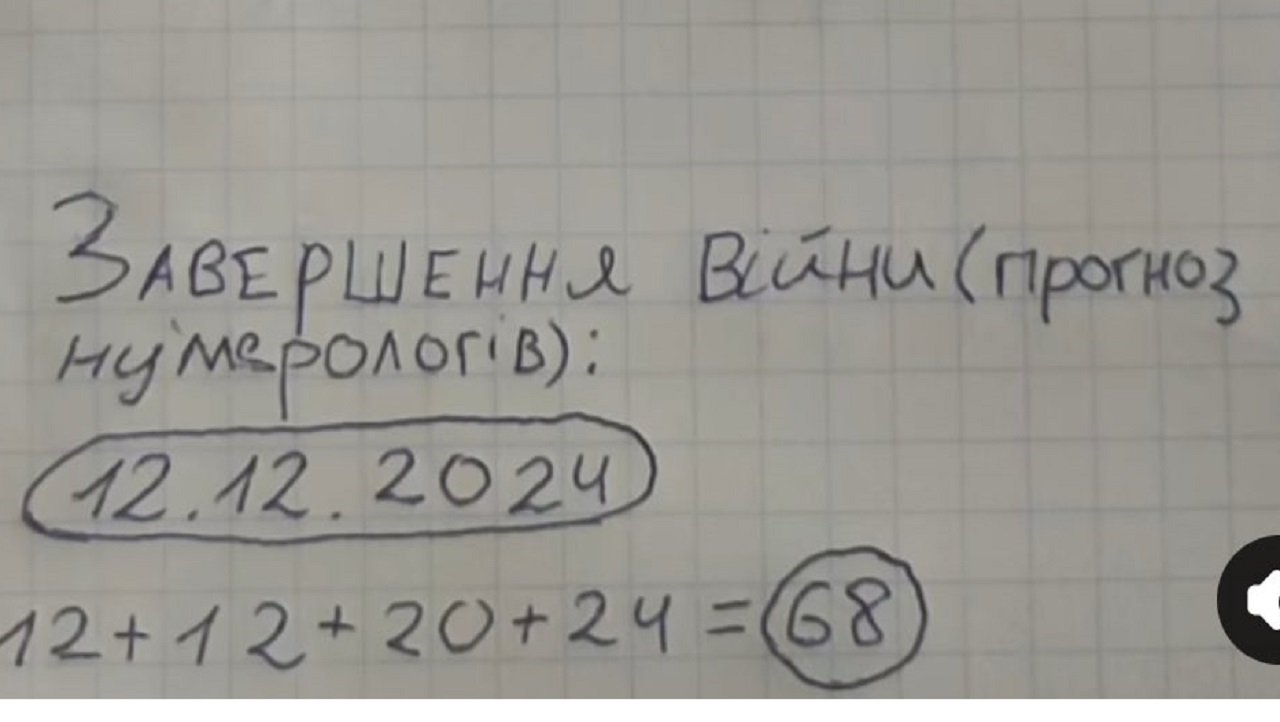 Завершення війни (прогноз
нумерологів):
12.12.2024
12+12+20+24=68